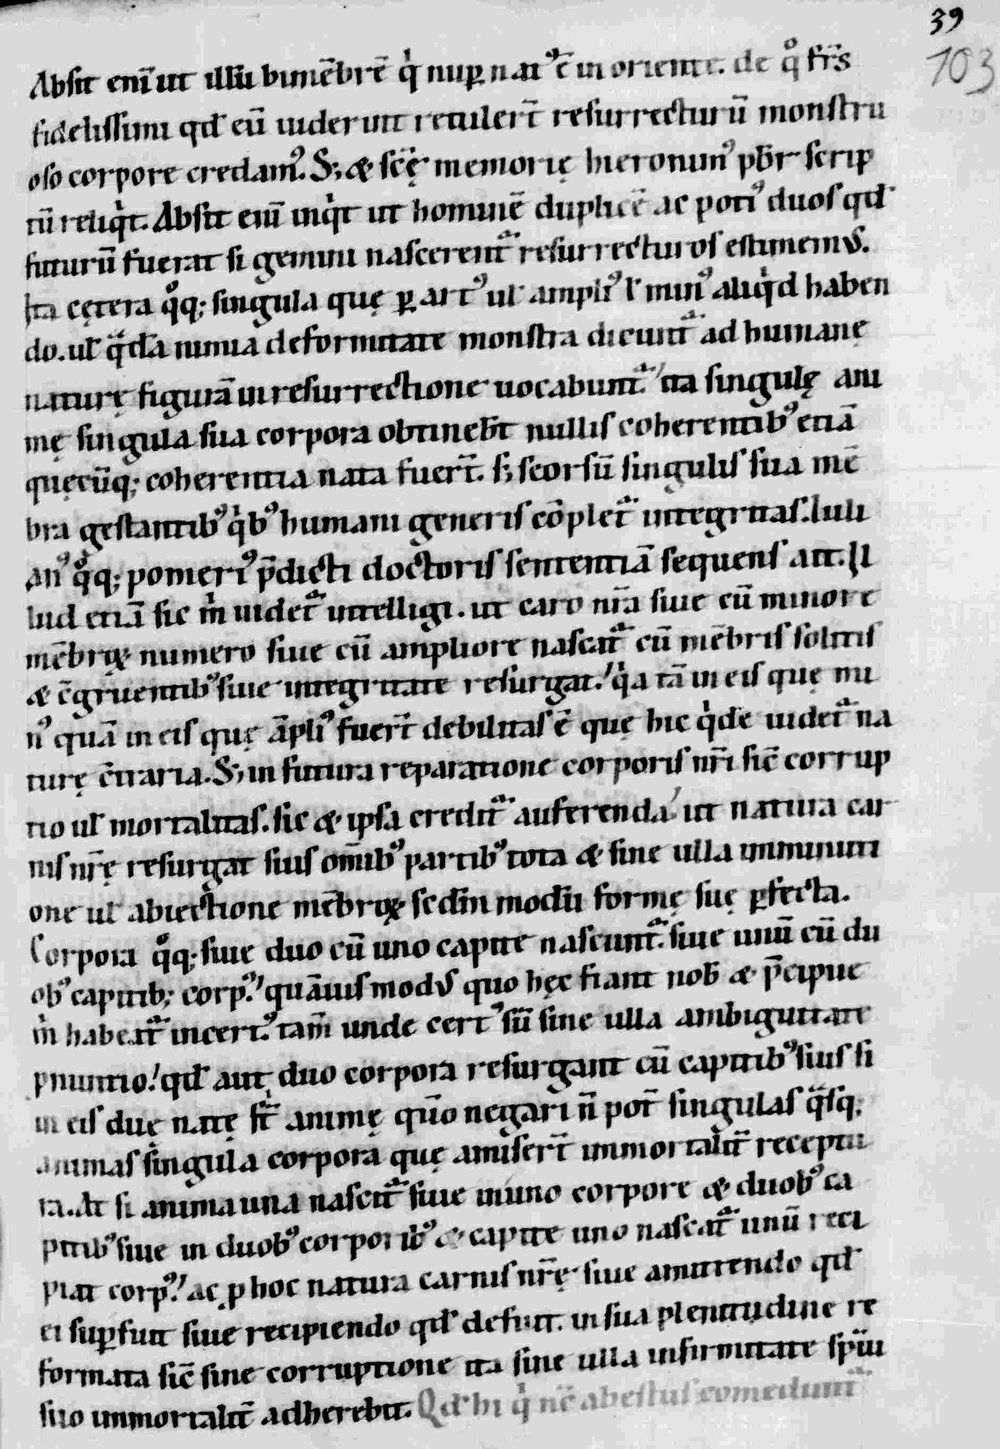 39
103
Absit eni̅ ut illu̅ bime̅bre̅ qͥ nuꝑ natꝰ e̅ in oriente. de qͦ fr̅s
fidelissimi qd̅ eu̅ uiderunt retulert̅ resurrecturu̅ monstru
oso corpore credamꝰ. S; & sc̅ę memorię hieronimꝰ pb̅r scrip
tu̅ reliqͥt. Absit eni̅ inqͥt ut homine̅ duplice̅ ac potiꝰ duos qd̅
futuru̅ fuerat si gemini nascerent᷑ resurrecturos estimemus.
Ita cętera qͦq; singula quę ꝑ artꝰ ul̅ ampliꝰ l̅ minꝰ aliqͥd haben
do. ul̅ qͣda̅ nimia deformitate monstra dicunt᷑ ad humanę
naturę figura̅ in resurrectione uocabunt᷑. ita singulę ani
mę singula sua corpora obtineb̅t nullis coherentibꝰ etia̅
quęcu̅q; coherentia nata fuert̅. s; seorsu̅ singulis sua me̅
bra gestantibꝰ qͥbꝰ humani generis co̅plet᷑ integritas. Iuli
anꝰ qͦq; pomeriꝰ p̅dicti doctoris sententia̅ sequens ait. Il
lud etia̅ sic m̊ uidet᷑ intelligi. ut caro nr̅a siue cu̅ minore
me̅broꝝ numero siue cu̅ ampliore nascat᷑ cu̅ me̅bris solitis
& c̅gruentibꝰ siue integritate resurgat. qͥa ta̅ in eis quę mi
nꝰ qua̅ in eis quę a̅pliꝰ fuert̅ debilitas e̅ que hic qͥde̅ uidet᷑ na
turę c̅traria. S; in futura reparatione corporis nr̅i sic̅ corrup
tio ul̅ mortalitas. sic & ipsa credit᷑ auferenda. ut natura car
nis nr̅ę resurgat suis om̅ibꝰ partibꝰ tota & sine ulla imminuti
one ul̅ abiectione me̅broꝝ scd̅m modu̅ formę suę ꝑfecta.
Corpora qͦq; siue duo cu̅ uno capite nascunt᷑. siue unu̅ cu̅ du
obꝰ capitib; corpꝰ. qua̅uis modus quo hęc fiant nob̅ & p̅cipue
m̊ habeat᷑ incertꝰ. tam̅ unde certꝰ su̅ sine ulla ambiguitate
ꝓnuntio. qd̅ aut̅ duo corpora resurgant cu̅ capitibꝰ suis si
in eis duę natę st̅ animę. quo̅ negari n̅ pot̅ singulas qͣsq;
animas singula corpora que amisert̅ immortalit̅ receptu
ra. At si anima una nascit᷑ siue in uno corpore & duobꝰ ca
pitibꝰ siue in duobꝰ corporibꝰ & capite uno nascat᷑ unu̅ reci
piat corpꝰ. ac ꝑ hoc natura carnis nr̅ę siue amittendo qd̅
ei suꝑfuit siue recipiendo qd̅ defuit. in sua plenitudine re
formata sic̅ sine corruptione ita sine ulla infirmitate spu̅i
suo immortalit̅ adherebit. Qd̅ hi qͥ nc̅ abestiis comedunt᷑